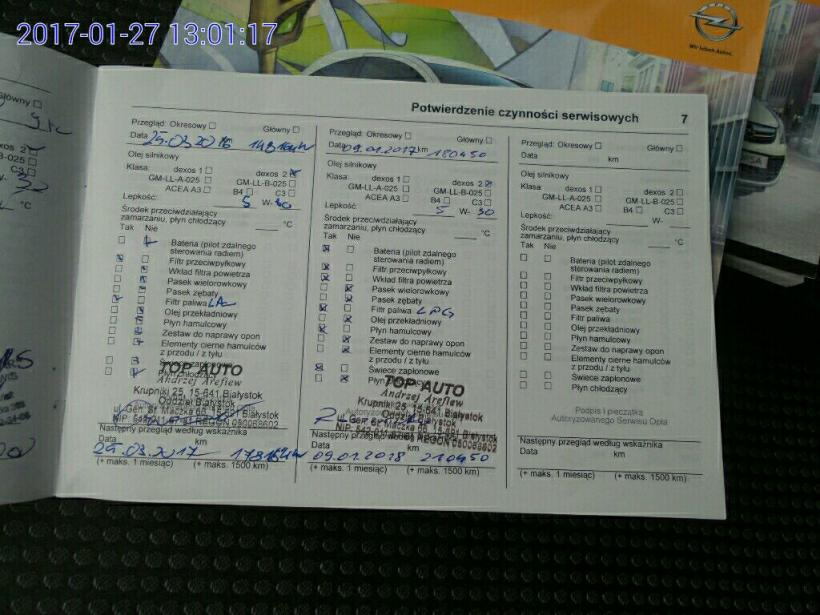 2017-01-27 13:01:17
Wir leben Autos.
Potwierdzenie czynności serwisowych 7
Główny
dexos 2
B-025
C3
°C
Przegląd: Okresowy Główny
Data 25.03.2016
Olej silnikowy
Klasa: dexos 1 dexos 2
GM-LL-A-025 GM-LL-B-025
ACEA A3 B4 C3
Lepkość: 5 W-30
Środek przeciwdziałający
zamarzaniu, płyn chłodzący °C
Tak Nie
Bateria (pilot zdalnego
sterowania radiem)
Filtr przeciwpyłkowy
Wkład filtra powietrza
Pasek wielorowkowy
Pasek zębaty
Filtr paliwa
Olej przekładniowy
Płyn hamulcowy
Zestaw do naprawy opon
Elementy cierne hamulców
z przodu / z tyłu
TOP AUTO
Andrzej Arefiew
Krupniki 25, 15-641 Białystok
Oddział Białystok
ul. Gen. St. Maczka 66, 15-641 Białystok
Następny przegląd według wskaźnika
Data km
25.03.2017
(+ maks. 1 miesiąc) (+ maks. 1500 km)
Przegląd: Okresowy Główny
Data 09.01.2017 km 180450
Olej silnikowy
Klasa: dexos 1 dexos 2
GM-LL-A-025 GM-LL-B-025
ACEA A3 B4 C3
Lepkość: 5 W- 30
Środek przeciwdziałający
zamarzaniu, płyn chłodzący °C
Tak Nie
Bateria (pilot zdalnego
sterowania radiem)
Filtr przeciwpyłkowy
Wkład filtra powietrza
Pasek wielorowkowy
Pasek zębaty
Filtr paliwa LPG
Olej przekładniowy
Płyn hamulcowy
Zestaw do naprawy opon
Elementy cierne hamulców
z przodu / z tyłu
Świece zapłonowe
TOP AUTO
Andrzej Arefiew
Krupniki 25, 15-641 Białystok
Oddział Białystok
ul. Gen. St. Maczka 66, 15-641 Białystok
Następny przegląd według wskaźnika
Data km
09.01.2018 210450
(+ maks. 1 miesiąc) (+ maks. 1500 km)
Przegląd: Okresowy Główny
Data km
Olej silnikowy
Klasa: dexos 1 dexos 2
GM-LL-A-025 GM-LL-B-025
ACEA A3 B4 C3
Lepkość: W-
Środek przeciwdziałający
zamarzaniu, płyn chłodzący °C
Tak Nie
Bateria (pilot zdalnego
sterowania radiem)
Filtr przeciwpyłkowy
Wkład filtra powietrza
Pasek wielorowkowy
Pasek zębaty
Filtr paliwa
Olej przekładniowy
Płyn hamulcowy
Zestaw do naprawy opon
Elementy cierne hamulców
z przodu / z tyłu
Świece zapłonowe
Płyn chłodzący
Podpis i pieczątka
Autoryzowanego Serwisu Opla
Następny przegląd według wskaźnika
Data km
(+ maks. 1 miesiąc) (+ maks. 1500 km)